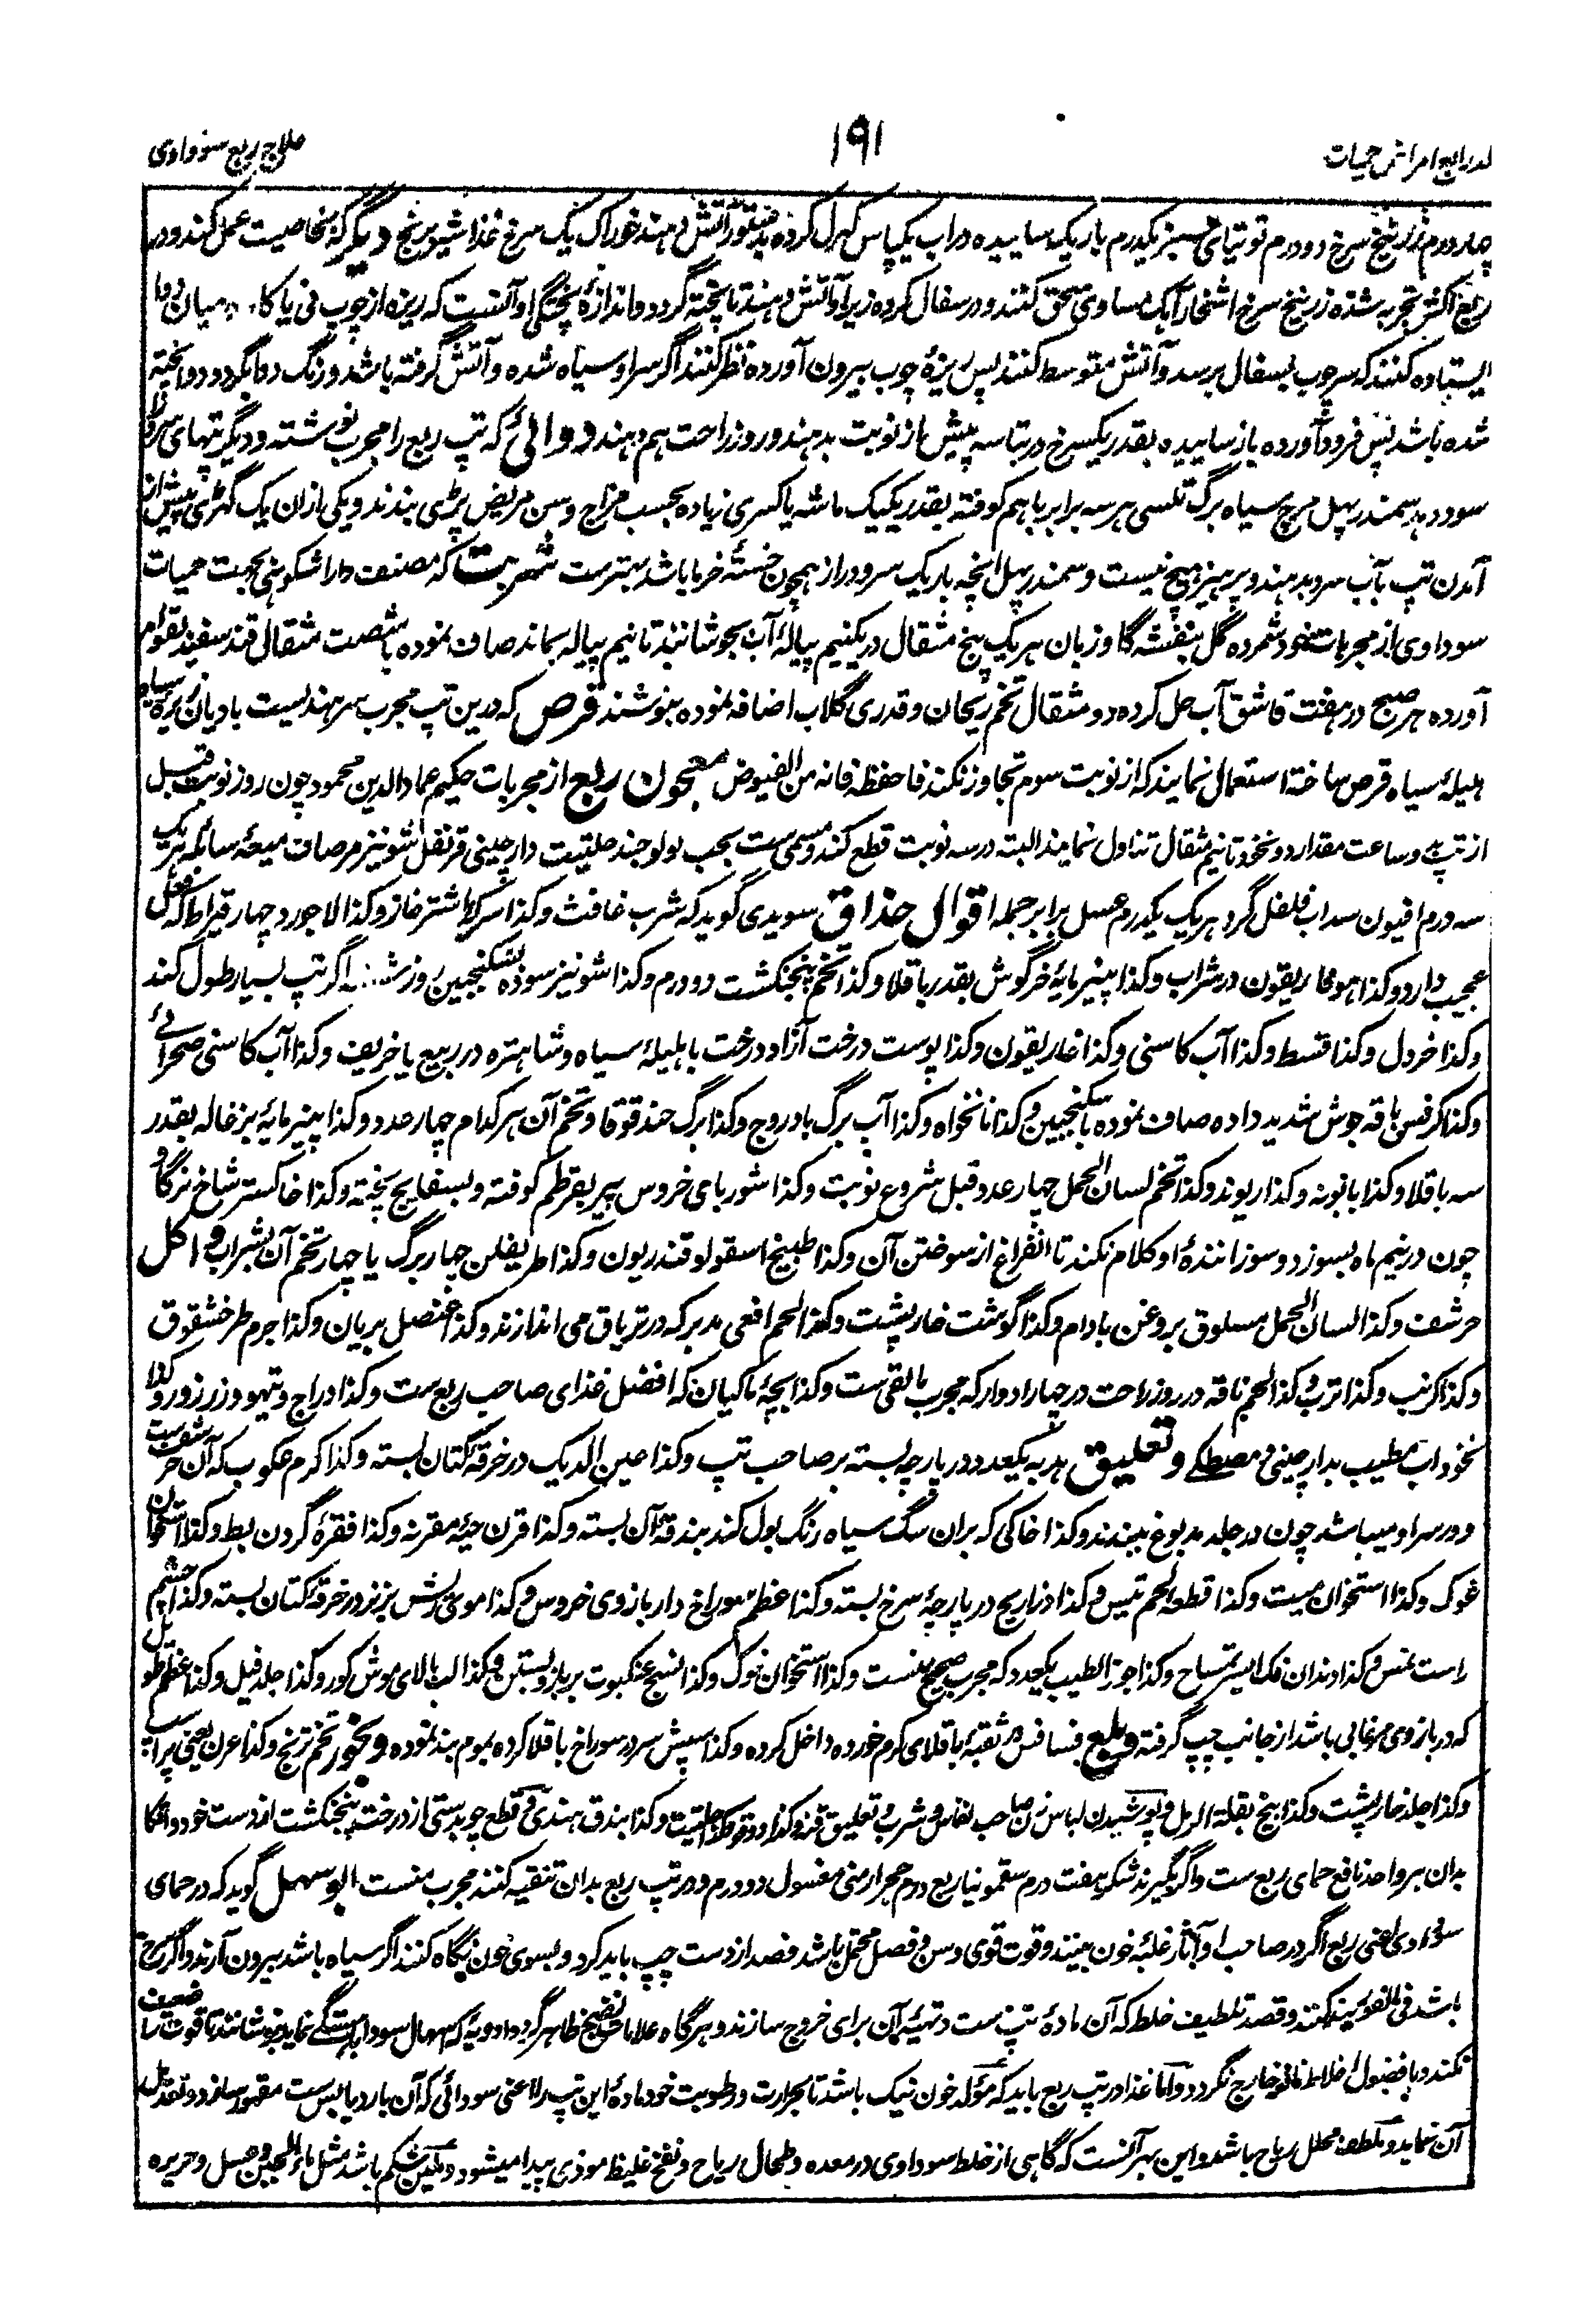 علاج ربع سوداوی
۱۹۱
امراض حمیات
چهار درم زرنیخ سرخ دو درم توتیای سبز یکدرم باریک ساییده در آب یکپاس کهرل کرده بدستور آتش دهند خوراک یک سرخ غذا شیر برنج دیگر که بخاصیت عمل کند و در
ربع اکثر تجربه شده زرنیخ سرخ اشخار آهک مساوی سحق کنند و در سفال کرده زیر او آتش دهند تا پخته گردد و اندازهٔ پختگی او آنست که ریزه از چوب نی یا کاه درمیان دوا
ایستاده کنند که سر چوب بسفال برسد و آتش متوسط کنند پس ریزهٔ چوب بیرون آورده نظر کنند اگر سر او سیاه شده و آتش گرفته باشد و رنگ دوا بگردد دوا پخته
شده باشد پس فرود آورده باز ساییده بقدر یکسرخ در بتاسه پیش از نوبت بدهند و روز راحت هم دهند دوائی که تپ ربع را مجرب نوشته و دیگر تپهای سرد را
سود دهد سمندر پهل مرچ سیاه برگ تلسی هر سه برابر باهم کوفته بقدر یکیک ماشه یا کسری زیاده بحسب مزاج و سن مریض پڑی بندند و یکی ازان یک گهڑی پیش از
آمدن تپ بآب سرد بدهند و پرهیز هیچ نیست و سمندر پهل آنچه باریک سر و دراز همچون خستهٔ خرما باشد بهترست شربت که مصنف داراشکوهی بجهت حمیات
سوداوی از مجربات خود شمرده گل بنفشه گاوزبان هر یک پنج مثقال در یکنیم پیالهٔ آب بجوشانند تا نیم پیاله بماند صاف نموده با شصت مثقال قند سفید بقوام
آورده هر صبح در هفت قاشق آب حل کرده دو مثقال تخم ریحان و قدری گلاب اضافه نموده بنوشند قرص که درین تپ مجرب سرهندیست بادیان زیرهٔ سیاه
هلیلهٔ سیاه قرص ساخته استعمال نمایند که از نوبت سوم تجاوز نکند فاحفظه فانه من الفیوض معجون ربع از مجربات حکیم عمادالدین محمود چون روز نوبت قبل
از تپ بدو ساعت مقدار دو نخود تا نیم مثقال تناول نمایند البته در سه نوبت قطع کند و مسمی ست بحب لولو جند حلتیت دارچینی قرنفل شونیز مر صاف میعهٔ سائله هر یک
سه درم افیون سداب فلفل گرد هر یک یکدرم عسل برابر جمله اقوال حذاق سویدی گوید که شرب غافث و کذا شرب اشترغاز و کذا لاجورد چهار قیراط که فعل
عجیب دارد و کذا هوفاریقون در شراب و کذا پنیر مایهٔ خرگوش بقدر باقلا و کذا تخم پنجنکشت دو درم و کذا شونیز سوده بسکنجبین روز اگر تپ بسیار طول کند
و کذا خردل و کذا قسط و کذا آب کاسنی و کذا غاریقون و کذا پوست درخت آزاد درخت با هلیلهٔ سیاه و شاهتره در ربیع یا خریف و کذا آب کاسنی صحرائی
و کذا کرفس باقه جوش شدید داده صاف نموده با سکنجبین و کذا نانخواه و کذا آب برگ بادروج و کذا برگ حندقوقا و تخم آن هر کدام چهار عدد و کذا پنیر مایهٔ بزغاله بقدر
سه باقلا و کذا بابونه و کذا ریوند و کذا تخم لسان الحمل چهار عدد قبل شروع نوبت و کذا شوربای خروس پیر بقرطم کوفته و بسفایج پخته و کذا خاکستر شاخ نرگاو
چون در نیم ماه بسوزد و سوزانندهٔ او کلام نکند تا انفراغ از سوختن آن و کذا طبیخ اسقولوقندریون و کذا طریفلن چهار برگ یا چهار تخم آن بشراب و اکل
حرشف و کذا لسان الحمل مسلوق بروغن بادام و کذا گوشت خارپشت و کذا لحم افعی مدبر که در تریاق می اندازند و کذا عنصل بریان و کذا جرم طرخشقوق
و کذا کرنب و کذا ترب و کذا لحم ناقه در روز راحت در چهار ادوار که مجرب مالقی ست و کذا بچهٔ ماکیان که افضل غذای صاحب ربع ست و کذا دراج و تیهو و زرزور و کذا
نخوداب مطیب بدارچینی و مصطکی و تعلیق هدبه یکعدد در پارچه بسته بر صاحب تپ و کذا عین الدیک در خرقهٔ کتان بسته و کذا کرم عکوب که آن حرشف ست
و در سر او میباشد چون در جلد مدبوغ ببندند و کذا خاکی که بران سگ سیاه رنگ بول کند بندقهٔ آن بسته و کذا قرن حیهٔ مقرنه و کذا فقرهٔ گردن بط و کذا استخوان
غوک و کذا استخوان میت و کذا قطعه لحم تیس و کذا ذراریح در پارچهٔ سرخ بسته و کذا عظم سوراخ دار بازوی خروس و کذا موی ریش بز نر در خرقهٔ کتان بسته و کذا چشم
راست نمس و کذا دندان فک ایسر تمساح و کذا جوز الطیب یکعدد که مجرب صحیح منست و کذا استخوان خوک و کذا نسج عنکبوت بر بازو بستن و کذا لب بالای موش کور و کذا جلد فیل و کذا عظم طویل
که در بازوی مرغابی باشد از جانب چپ گرفته و بلع فسافس در ثقبهٔ باقلای کرم خورده داخل کرده و کذا سپش سر در سوراخ باقلا کرده بموم بند نموده و بخور تخم ترنج و کذا عرن یعنی
و کذا جلد خارپشت و کذا بیخ بقلة الرمل و پوشیدن لباس زن صاحب نفاس و شرب و تعلیق قنه و کذا دوقو و کذا حلتیت و کذا بندق هندی و قطع چوبدستی از درخت پنجنکشت از دست خود و اتکا
بدان هر واحد نافع حمای ربع ست و اگر بگیرند شکر هفت درم سقمونیا ربع درم حجر ارمنی مغسول دو درم و در تپ ربع بدان تنقیه کنند مجرب منست ابو سهل گوید که در حمای
سوداوی اعنی ربع اگر در صاحب او آثار غلبهٔ خون بینند و قوت قوی و سن و فصل محتمل باشد فصد از دست چپ باید کرد و بسوی خون نگاه کنند اگر سیاه باشد بیرون آرند و اگر سرخ
باشد فی الفور بند کنند و قصد تلطیف خلط که آن مادهٔ تپ ست و تهیئهٔ آن برای خروج سازند و هرگاه علامات نضج ظاهر گردد ادویه که اسهال سودا بآهستگی نماید بنوشانند تا قوت را ضعیف
نکند و با فضول اخلاط نافع خارج نگردد و اما غذا در تپ ربع باید که مولد خون نیک باشد تا بحرارت و رطوبت خود مادهٔ این تپ را اعنی سودائی که آن بارد یابس ست مقهور سازد و تعدیل
آن نماید و ملطف محلل ریاح باشد و این بهر آنست که گاهی از خلط سوداوی در معده و طحال ریاح و نفخ غلیظ موذی پیدا میشود و ملین شکم باشد مثل ماء الجبن و عسل و حریره